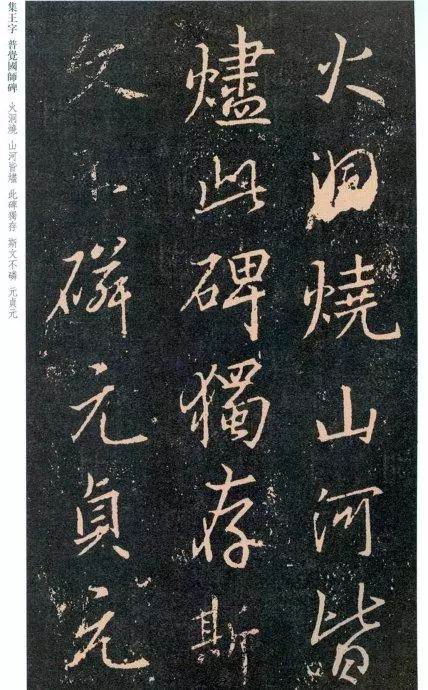 火洞燒山河皆
燼此碑獨存斯
文不磷元貞元
集王字 普覺國師碑 火洞燒 山河皆燼 此碑獨存 斯文不磷 元貞元